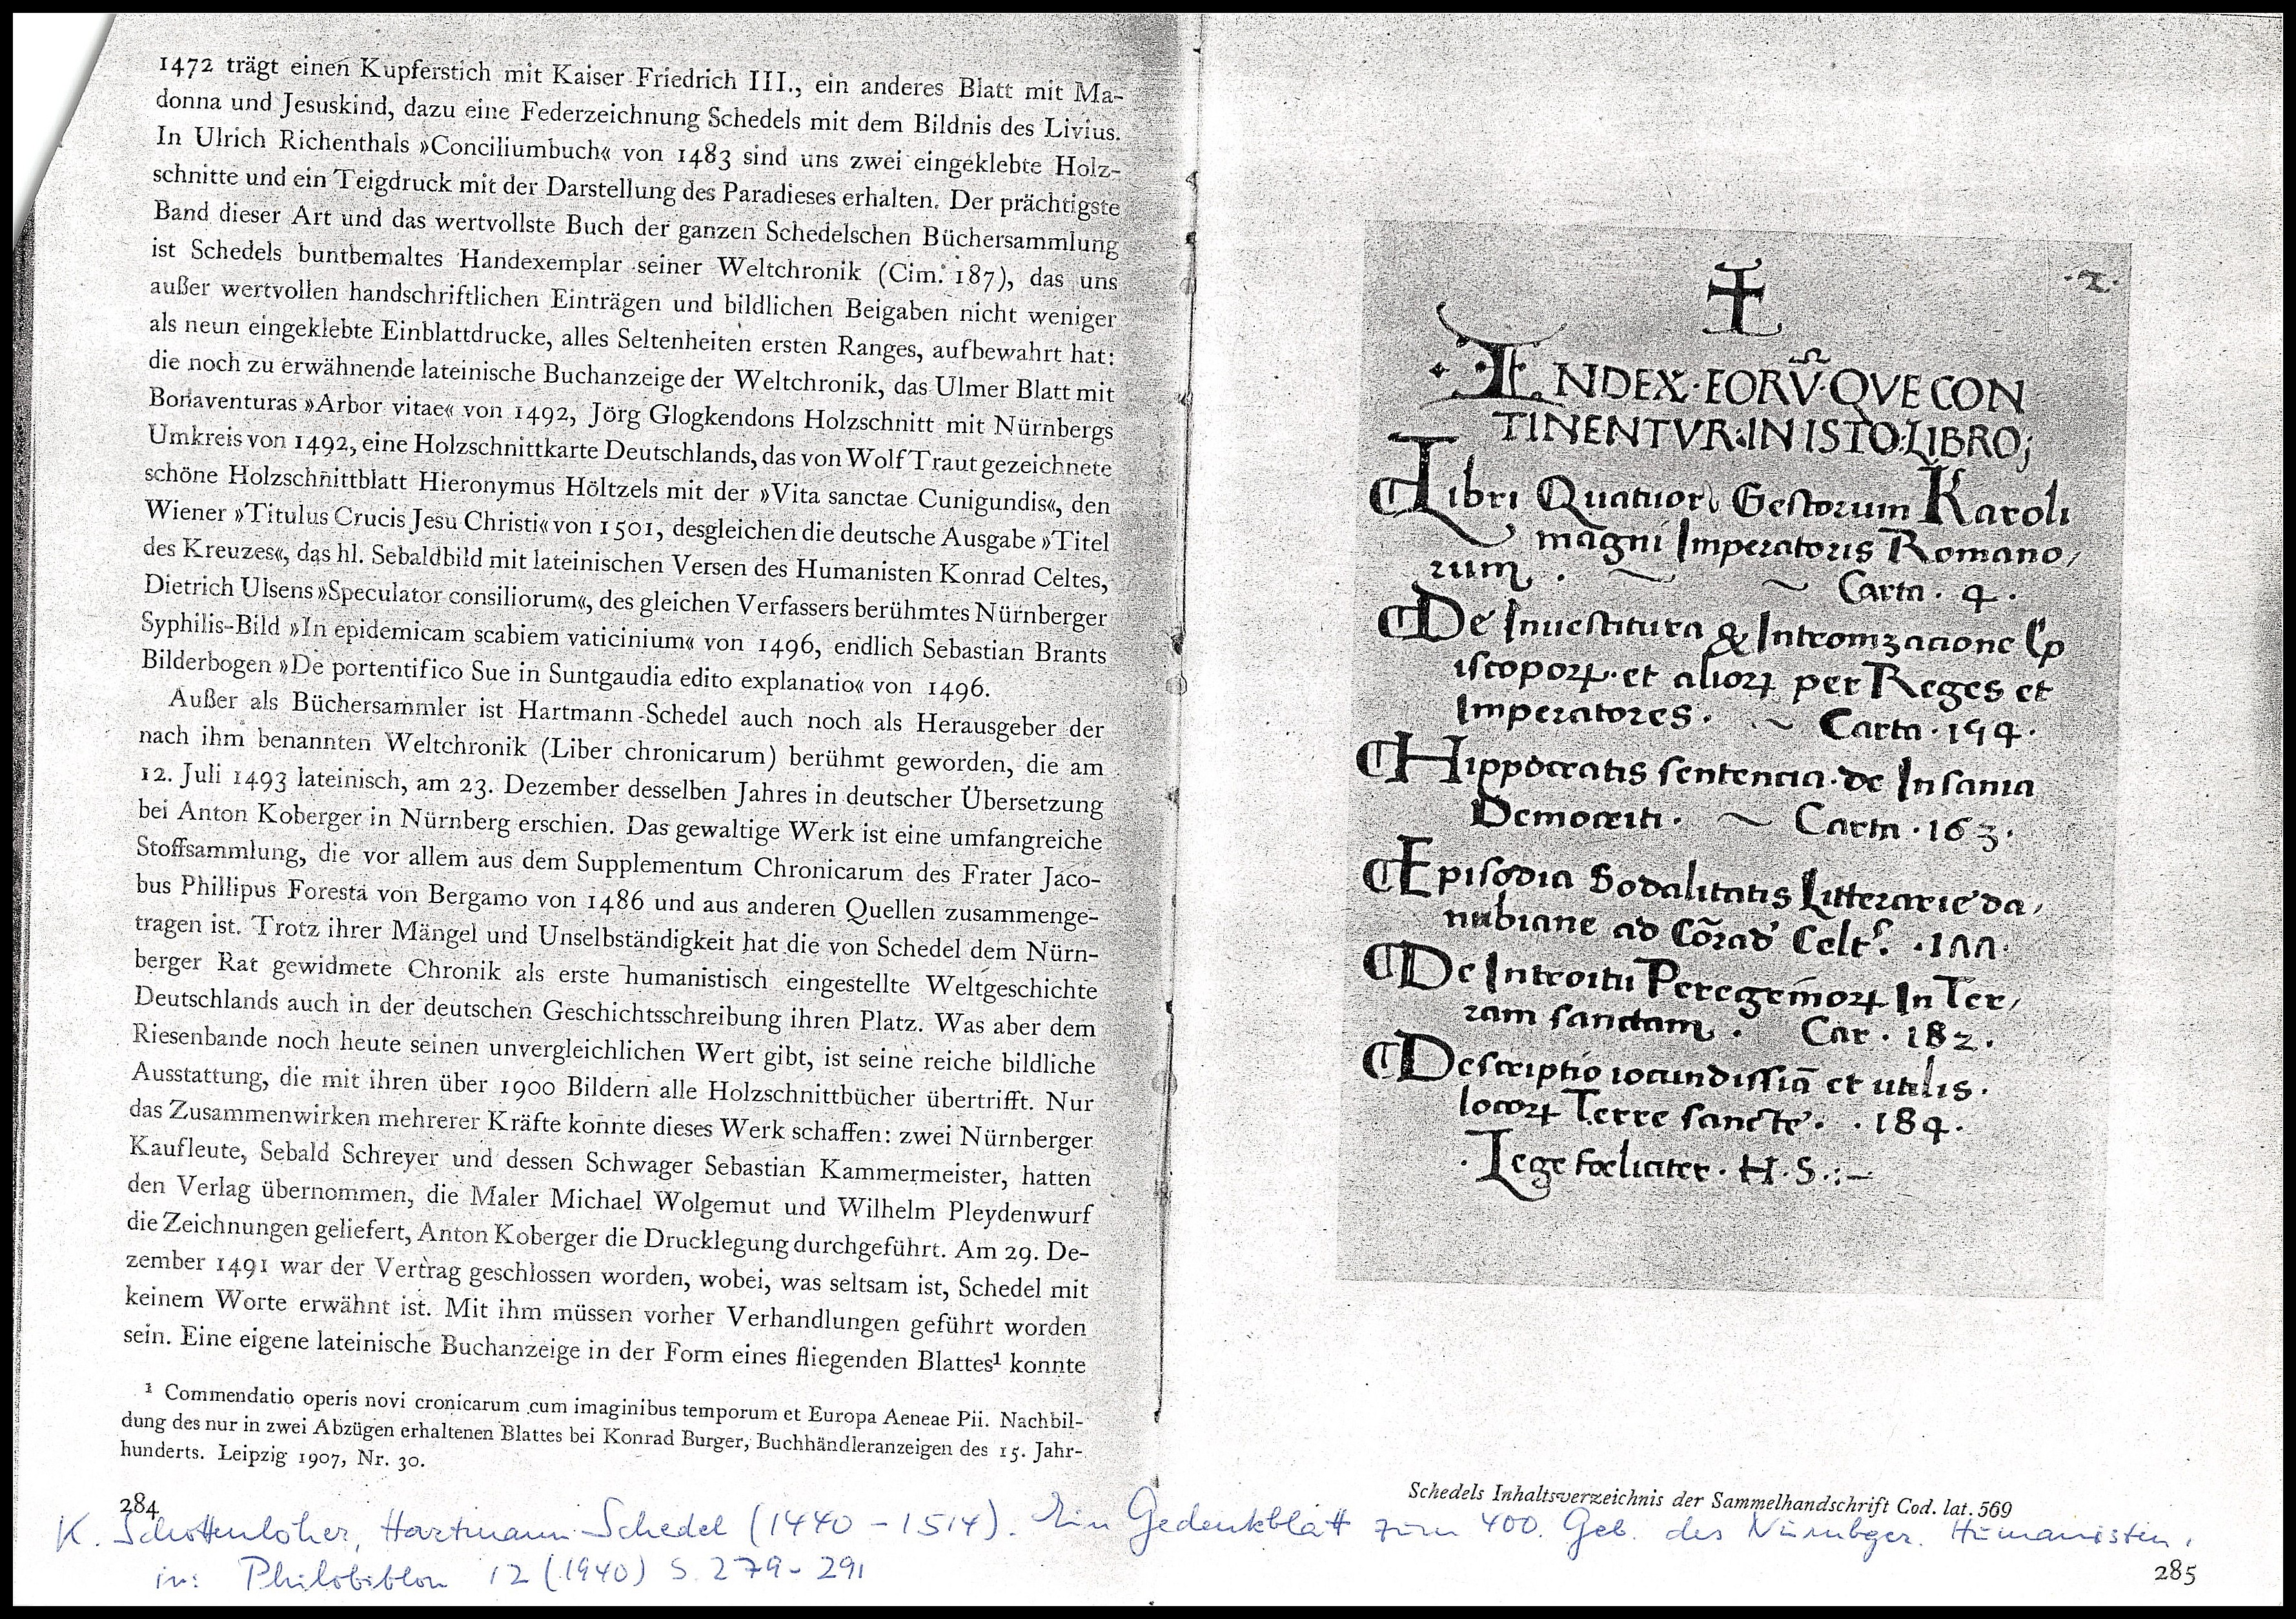 1472 trägt einen Kupferstich mit Kaiser Friedrich III., ein anderes Blatt mit Ma-
donna und Jesuskind, dazu eine Federzeichnung Schedels mit dem Bildnis des Livius.
In Ulrich Richenthals »Conciliumbuch« von 1483 sind uns zwei eingeklebte Holz-
schnitte und ein Teigdruck mit der Darstellung des Paradieses erhalten. Der prächtigste
Band dieser Art und das wertvollste Buch der ganzen Schedelschen Büchersammlung
ist Schedels buntbemaltes Handexemplar seiner Weltchronik (Cim. 187), das uns
außer wertvollen handschriftlichen Einträgen und bildlichen Beigaben nicht weniger
als neun eingeklebte Einblattdrucke, alles Seltenheiten ersten Ranges, aufbewahrt hat:
die noch zu erwähnende lateinische Buchanzeige der Weltchronik, das Ulmer Blatt mit
Bonaventuras »Arbor vitae« von 1492, Jörg Glogkendons Holzschnitt mit Nürnbergs
Umkreis von 1492, eine Holzschnittkarte Deutschlands, das von Wolf Traut gezeichnete
schöne Holzschnittblatt Hieronymus Höltzels mit der »Vita sanctae Cunigundis«, den
Wiener »Titulus Crucis Jesu Christi« von 1501, desgleichen die deutsche Ausgabe »Titel
des Kreuzes«, das hl. Sebaldbild mit lateinischen Versen des Humanisten Konrad Celtes,
Dietrich Ulsens »Speculator consiliorum«, des gleichen Verfassers berühmtes Nürnberger
Syphilis-Bild »In epidemicam scabiem vaticinium« von 1496, endlich Sebastian Brants
Bilderbogen »De portentifico Sue in Suntgaudia edito explanatio« von 1496.
Außer als Büchersammler ist Hartmann Schedel auch noch als Herausgeber der
nach ihm benannten Weltchronik (Liber chronicarum) berühmt geworden, die am
12. Juli 1493 lateinisch, am 23. Dezember desselben Jahres in deutscher Übersetzung
bei Anton Koberger in Nürnberg erschien. Das gewaltige Werk ist eine umfangreiche
Stoffsammlung, die vor allem aus dem Supplementum Chronicarum des Frater Jaco-
bus Phillipus Foresta von Bergamo von 1486 und aus anderen Quellen zusammenge-
tragen ist. Trotz ihrer Mängel und Unselbständigkeit hat die von Schedel dem Nürn-
berger Rat gewidmete Chronik als erste humanistisch eingestellte Weltgeschichte
Deutschlands auch in der deutschen Geschichtsschreibung ihren Platz. Was aber dem
Riesenbande noch heute seinen unvergleichlichen Wert gibt, ist seine reiche bildliche
Ausstattung, die mit ihren über 1900 Bildern alle Holzschnittbücher übertrifft. Nur
das Zusammenwirken mehrerer Kräfte konnte dieses Werk schaffen: zwei Nürnberger
Kaufleute, Sebald Schreyer und dessen Schwager Sebastian Kammermeister, hatten
den Verlag übernommen, die Maler Michael Wolgemut und Wilhelm Pleydenwurf
die Zeichnungen geliefert, Anton Koberger die Drucklegung durchgeführt. Am 29. De-
zember 1491 war der Vertrag geschlossen worden, wobei, was seltsam ist, Schedel mit
keinem Worte erwähnt ist. Mit ihm müssen vorher Verhandlungen geführt worden
sein. Eine eigene lateinische Buchanzeige in der Form eines fliegenden Blattes¹ konnte
¹ Commendatio operis novi cronicarum cum imaginibus temporum et Europa Aeneae Pii. Nachbil-
dung des nur in zwei Abzügen erhaltenen Blattes bei Konrad Burger, Buchhändleranzeigen des 15. Jahr-
hunderts. Leipzig 1907, Nr. 30.
284
·2·
INDEX·EORV̄·QVE CON
TINENTVR·IN ISTO·LIBRO;
Libri Quatuor Gestorum Karoli
magni Imperatoris Romano/
rum. ~ ~ Carta · 4 ·
De Inuestitura & Intronizacione Ep
iscoporꝝ et aliorꝝ per Reges et
Imperatores · ~ Carta · 154 ·
Hippocratis sentencia de Insania
Democriti · ~ Carta · 163 ·
Episodia Sodalitatis Litterarie da/
nubiane ad Cōrad Celt. · 177 ·
De Introitu Peregrinorꝝ In Ter/
ram sanctam · Car · 182 ·
Descriptio iocundissiā et utilis ·
locorꝝ Terre sancte · · 184 ·
· Lege foeliciter · H · S · :—
Schedels Inhaltsverzeichnis der Sammelhandschrift Cod. lat. 569
K. Schottenloher, Hartmann Schedel (1440 – 1514). Ein Gedenkblatt zum 400. Geb. des Nürnbger. Humanisten,
in: Philobiblon 12 (1940) S. 279 - 291
285